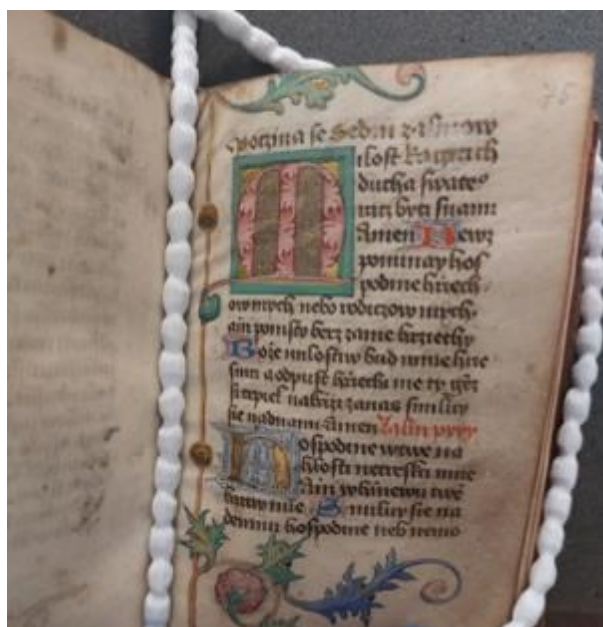 75
Poczina se Sedm zalmow
Milost
ducha swate⁹
racz byti snami
Amen Newz
pominay hos
podine hrziech
ow mych nebo rodiczow mych
ani pomsty berz zame hrziechy
Boże milostiw bud mnie hrie
 a odpust hrziechi me ty gēz
si trpiel na krzizi zanas smiluy
sie nadnami Amen Zalm prwy
Hospodine w twe na
hlosti netresktz mne
Ani w hniewu twē
karay mne Smiluy sie na
demnu hospodine neb nemo